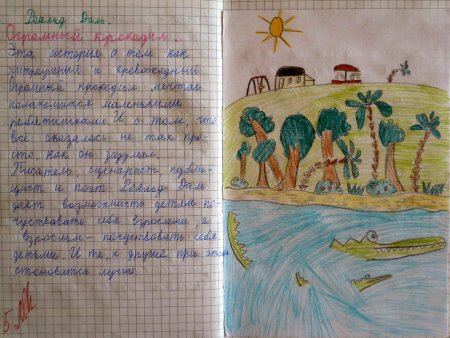 Роальд Даль.
Огромный крокодил.
Эта история о том как
хитроумный и кровожадный
Огромный крокодил мечтал
полакомится маленькими
ребятишками. И о том, что
всё оказалось не так про-
сто, как он задумал.
Писатель, сценарист, публи-
цист и поэт Роальд Даль
даёт возможность детям по-
чувствовать себя взрослыми и
взрослым - почуствовать себя
детьми. И те, и другие при этом
становятся лучше.
5